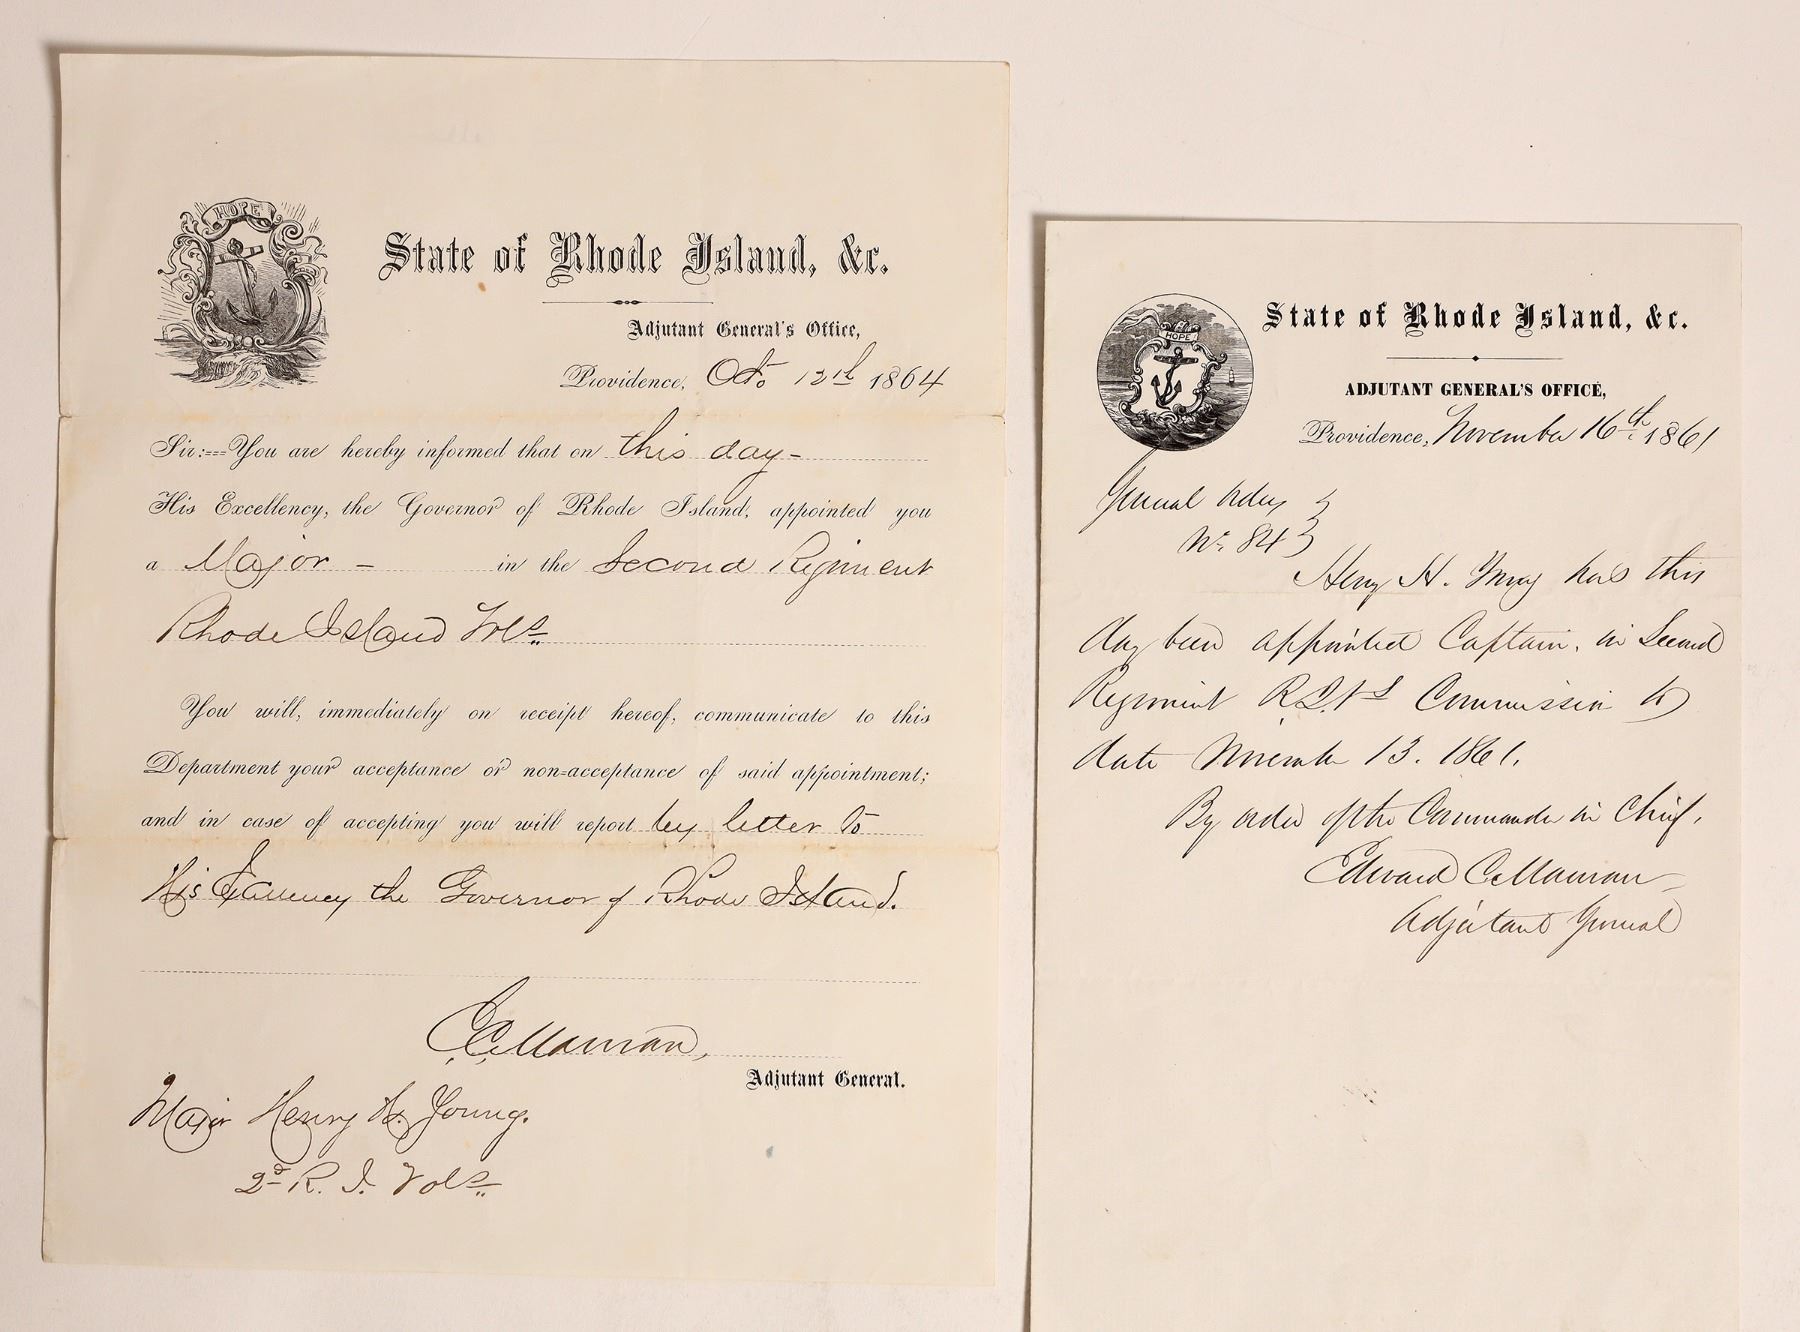 HOPE
State of Rhode Island, &c.
Adjutant General's Office,
Providence, Oct. 12th 1864
Sir:---You are hereby informed that on this day-
His Excellency, the Governor of Rhode Island, appointed you
a Major - in the Second Regiment
Rhode Island Vols.
You will, immediately on receipt hereof, communicate to this
Department your acceptance or non-acceptance of said appointment;
and in case of accepting you will report by letter to
His Excellency the Governor of Rhode Island.
Adjutant General.
Major Henry H. Young.
2d R. I. Vols.
HOPE
State of Rhode Island, &c.
ADJUTANT GENERAL'S OFFICE,
Providence, November 16th 1861
General Orders
No. 84
Henry H. Young has this
day been appointed Captain, in Second
Regiment R.I.Vs Commission to
date November 13. 1861.
By order of the Commander in Chief,
Edward C. Mauran
Adjutant General